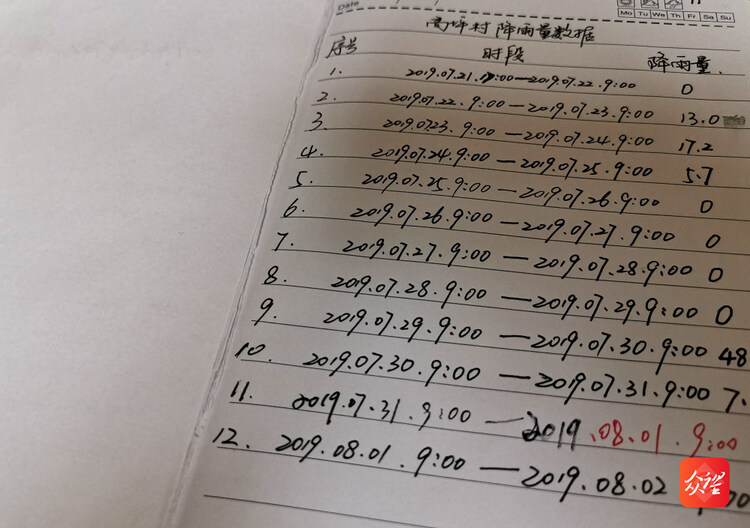 Date
Mo Tu We Th Fr Sa Su
高坪村降雨量数据
序号 时段 降雨量
1. 2019.07.21. 9:00—2019.07.22. 9:00 0
2. 2019.07.22. 9:00—2019.07.23. 9:00 13.0
3. 2019.07.23. 9:00—2019.07.24. 9:00 17.2
4. 2019.07.24. 9:00—2019.07.25. 9:00 5.7
5. 2019.07.25. 9:00—2019.07.26. 9:00 0
6. 2019.07.26. 9:00—2019.07.27. 9:00 0
7. 2019.07.27. 9:00—2019.07.28. 9:00 0
8. 2019.07.28. 9:00—2019.07.29. 9:00 0
9. 2019.07.29. 9:00—2019.07.30. 9:00 48
10. 2019.07.30. 9:00—2019.07.31. 9:00 7.
11. 2019.07.31. 9:00—2019.08.01. 9:00
12. 2019.08.01. 9:00—2019.08.02
众望